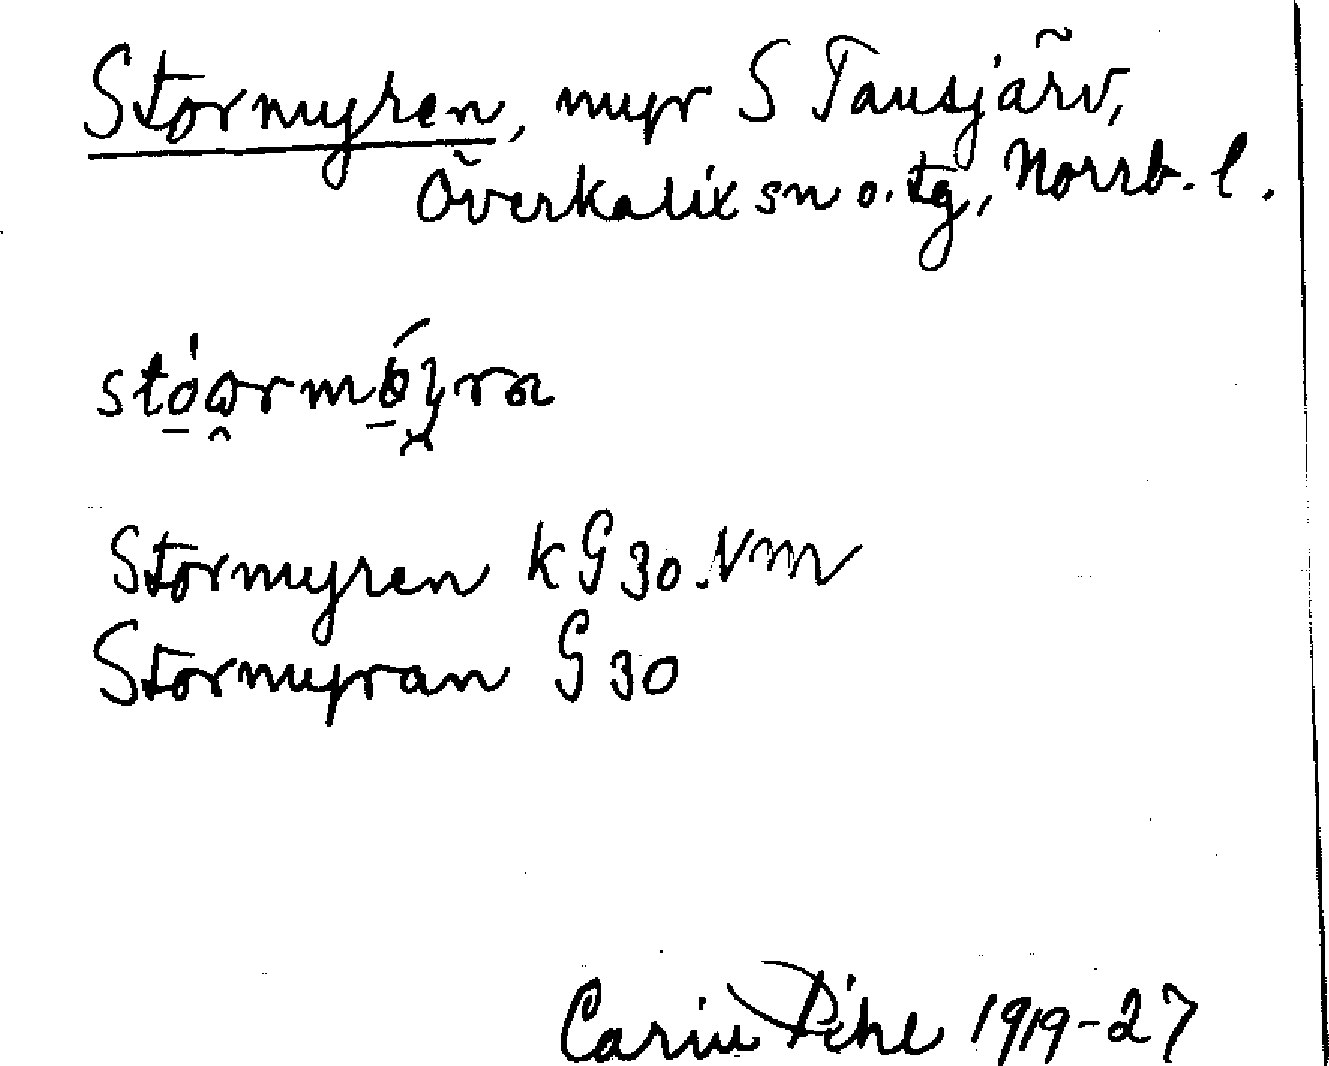 Stormyren, myr S Tansjärv,
Överkalix sn o. tg, Norrb. l.
Stormyren kG 30. Vm
Stormyran G 30
Carin Pihl 1919-27